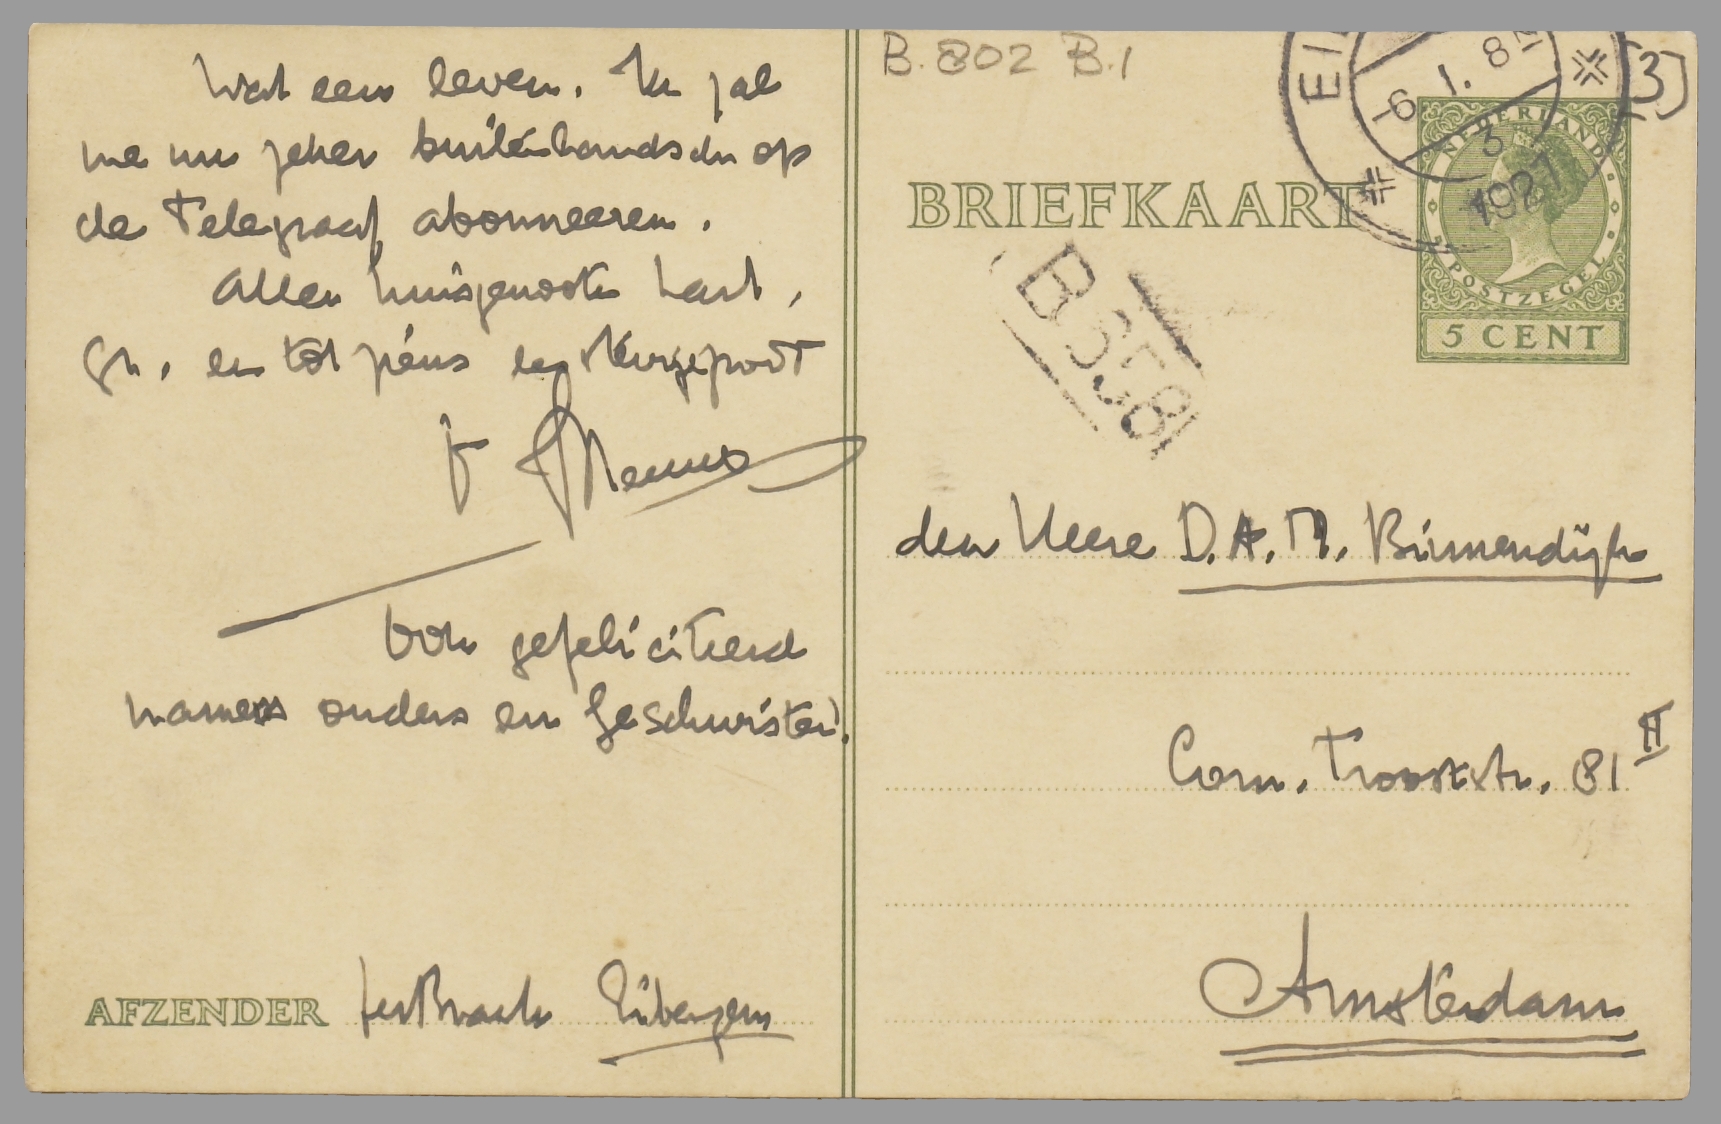 Wat een leven. Ik zal
me nu zeker buitenlandsch op
de Telegraaf abonneeren.
Allen huisgenooten hart.
gr. en tot ziens en
t.t. Menno
Ook gefeliciteerd
namens ouders en Geschwister!
AFZENDER ter Braak Eibergen
B.802 B.1
3)
EI
-6.1.8
3
1927
BRIEFKAART
NEDERLAND
POSTZEGEL
5 CENT
B 558
den Heere D.A.M. Binnendijk
Corn. Trooststr. 81 II
Amsterdam